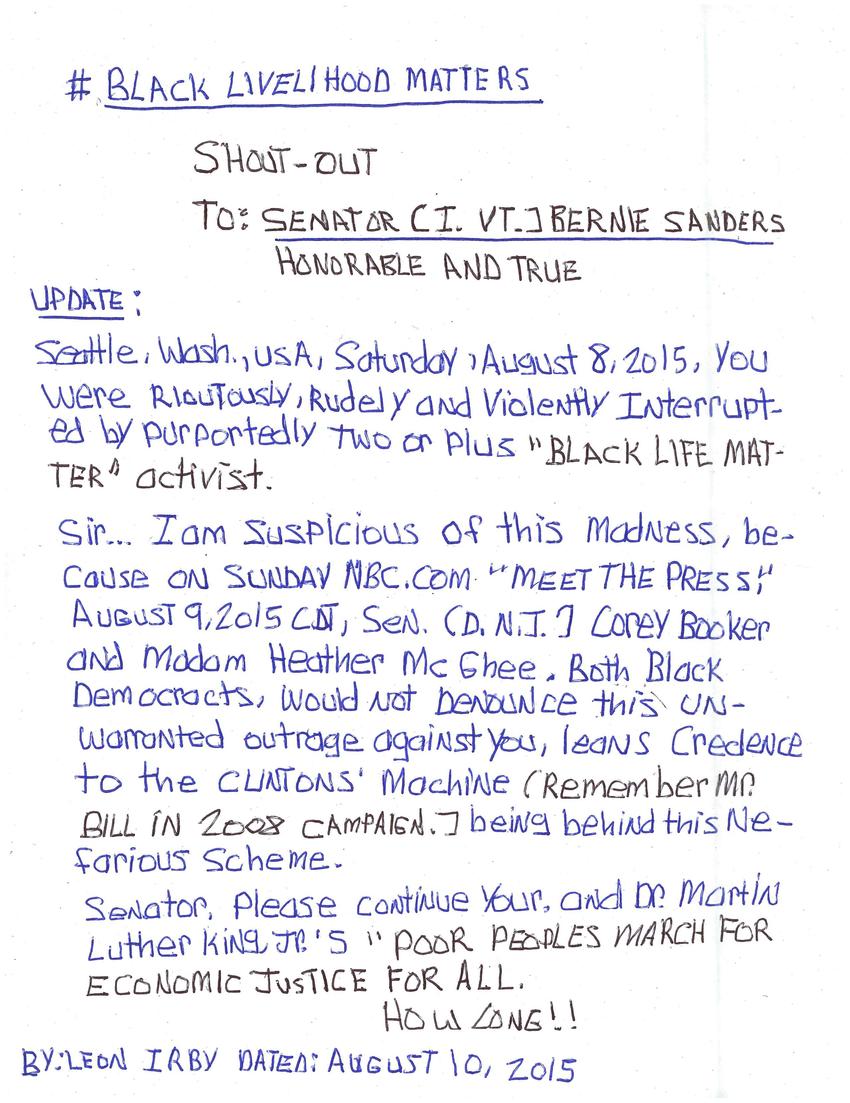 # BLACK LIVELIHOOD MATTERS
SHOUT-OUT
TO: SENATOR (I. VT.] BERNIE SANDERS
HONORABLE AND TRUE
UPDATE:
Seattle, Wash., USA, Saturday, August 8, 2015, you
were Rioutously, Rudely and Violently Interrupt-
ed by purportedly two or plus "BLACK LIFE MAT-
TER" activist.
Sir... I am suspicious of this Madness, be-
cause ON SUNDAY NBC.COM "MEET THE PRESS,"
AUGUST 9, 2015 CDT, Sen. (D. N.J.] Corey Booker
and Madam Heather McGhee. Both Black
Democracts, would not DENOUNCE this UN-
warranted outrage against you, leans Credence
to the CLINTONS' Machine (Remember MR.
BILL IN 2008 CAMPAIGN.] being behind this Ne-
farious Scheme.
Senator, Please continue your, and DR. Martin
Luther King JR.'S "POOR PEOPLES MARCH FOR
ECONOMIC JUSTICE FOR ALL.
HOW LONG!!
BY: LEON IRBY DATED: AUGUST 10, 2015